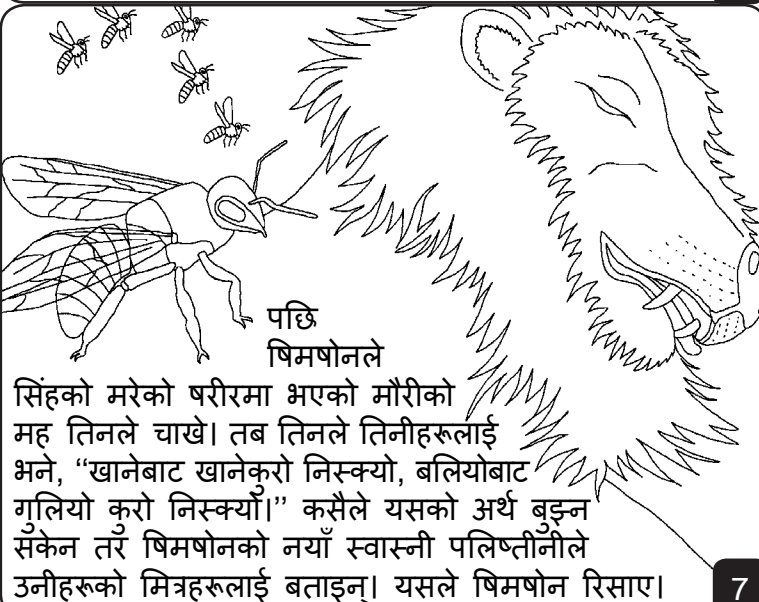 पछि
षिमषोनले
सिंहको मरेको षरीरमा भएको मौरीको
मह तिनले चाखे। तब तिनले तिनीहरूलाई
भने, ‘‘खानेबाट खानेकुरो निस्क्यो, बलियोबाट
गुलियो कुरो निस्क्यो।’’ कसैले यसको अर्थ बुझ्न
सकेन तर षिमषोनको नयाँ स्वास्नी पलिष्तीनीले
उनीहरूको मित्रहरूलाई बताइन्। यसले षिमषोन रिसाए।
7